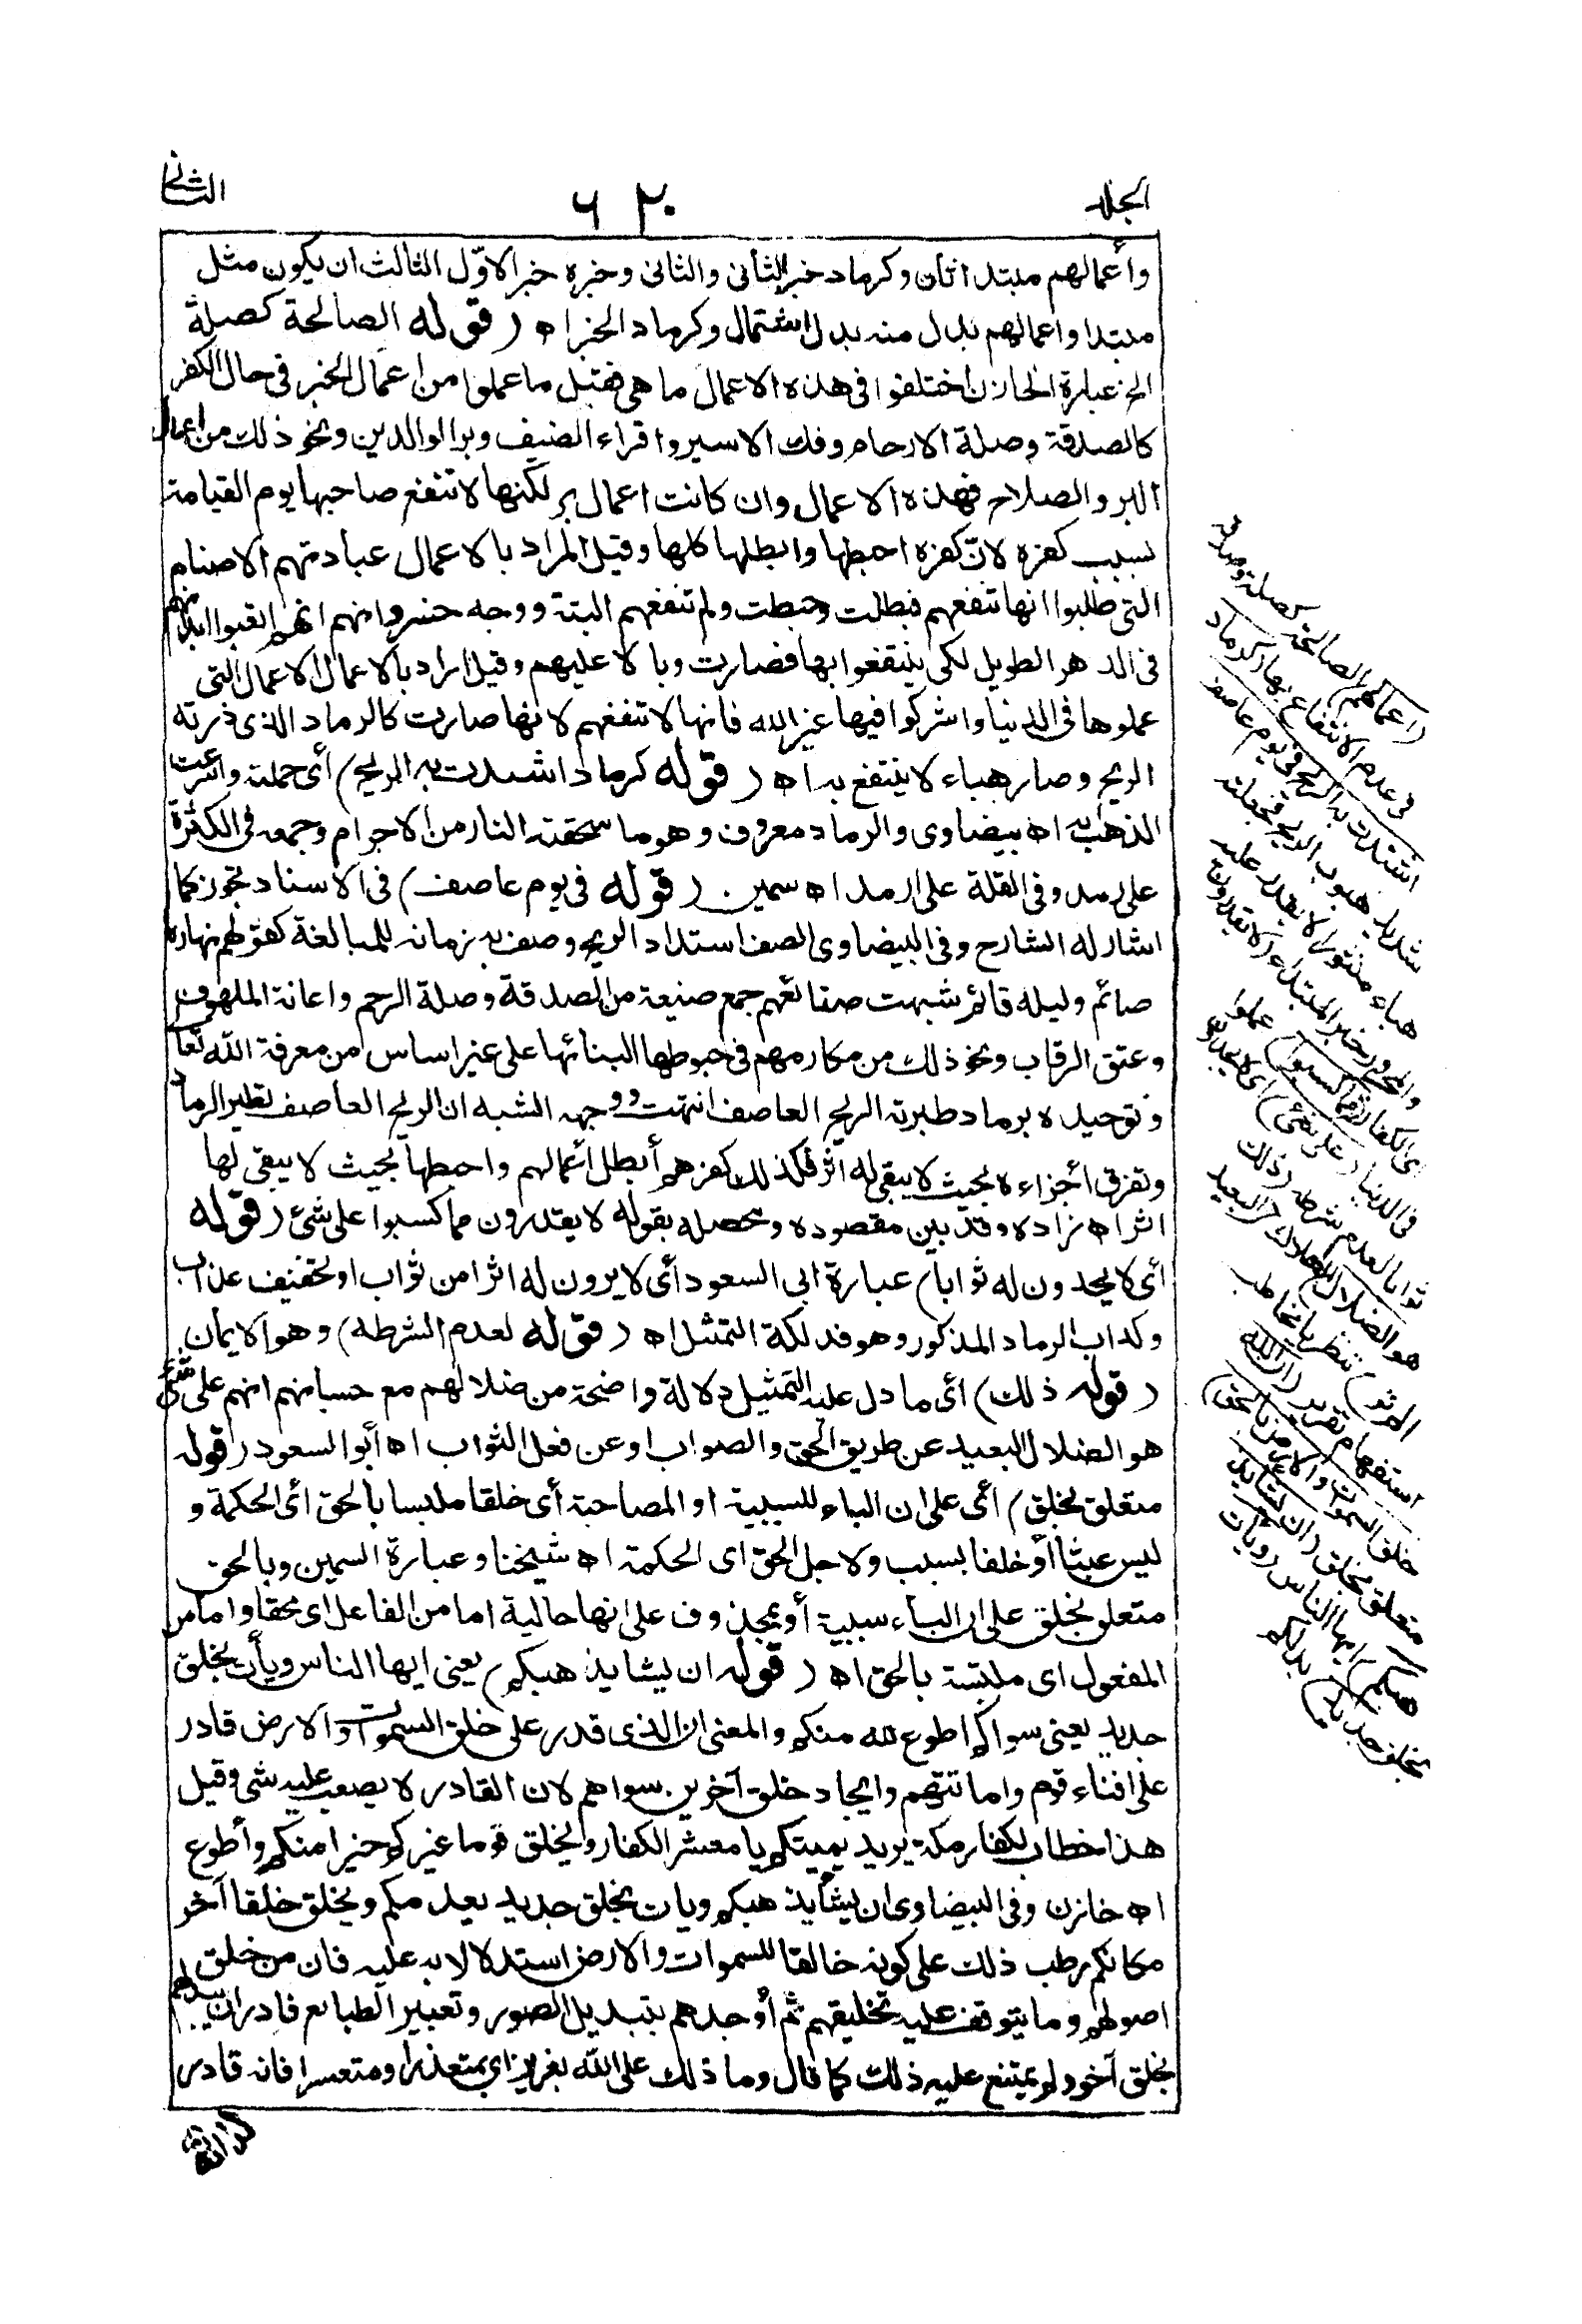 الجلد
٦٢٠
الثانى
وأعمالهم مبتدا ثان وكرماد خبر للثانى والثانى وخبره خبر الاوّل الثالث ان يكون مثل
مبتدا واعمالهم بدل منه بدل اشتمال وكرماد الخبر اه (قوله الصالحة كصلة
الخ عبارة الخازن اختلفوا فى هذه الاعمال ما هى فقيل ما عملوا من اعمال الخير فى حال الكفر
كالصدقة وصلة الارحام وفك الاسير واقراء الضيف وبر الوالدين ونحو ذلك من اعمال
البر والصلاح فهذه الاعمال وان كانت اعمال بر لكنها لا تنفع صاحبها يوم القيامة
بسبب كفره لانّ كفره احبطها وابطلها كلها وقيل المراد بالاعمال عبادتهم الاصنام
التى طلبوا انها تنفعهم فبطلت وحبطت ولم تنفعهم البتة ووجه خسرانهم انهم اتعبوا ابدانهم
فى الدهر الطويل لكى ينتفعوا بها فصارت وبالا عليهم وقيل اراد بالاعمال الاعمال التى
عملوها فى الدنيا واشركوا فيها غير الله فانها لا تنفعهم لانها صارت كالرماد الذى ذرته
الريح وصار هباء لا ينتفع به اه (قوله كرماد اشتدت به الريح) أى حملته واسرعت
الذهب به اه بيضاوى والرماد معروف وهو ما سحقته النار من الاجرام وجمعه فى الكثرة
على رمد وفى القلة على ارمد اه سمين (قوله فى يوم عاصف) فى الاسناد تجوز كما
اشار له الشارح وفى البيضاوى العصف اشتداد الريح وصف به زمانه للمبالغة كقولهم نهاره
صائم وليله قائم شبهت صنائعهم جمع صنيعة من الصدقة وصلة الرحم واعانة الملهوف
وعتق الرقاب ونحو ذلك من مكارمهم فى حبوطها لبنائها على غير اساس من معرفة الله تعا
وتوحيده برماد طيرته الريح العاصف انتهت ووجه الشبه ان الريح العاصف تطير الرماد
وتفرق أجزاءه بحيث لا يبقى له اثر فكذلك كفرهم أبطل أعمالهم واحبطها بحيث لا يبقى لها
اثر اه زاده وقد بين مقصوده ومحصله بقوله لا يقدرون مما كسبوا على شئ (قوله
أى لا يجدون له ثوابا) عبارة ابى السعود أى لا يرون له اثرا من ثواب او تخفيف عذاب
وكداب الرماد المذكور وهو فذلكة التمثيل اه (قوله لعدم الشرطه) وهو الايمان
(قوله ذلك) أى ما دل عليه التمثيل دلالة واضحة من ضلالهم مع حسبانهم انهم على شئ
هو الضلال البعيد عن طريق الحق والصواب او عن فعل الثواب اه أبو السعود (قوله
متعلق بخلق) أى على ان الباء للسببية او المصاحبة أى خلقا ملبسا بالحق أى الحكمة و
ليس عبثا أو خلقا بسبب ولاجل الحق اى الحكمة اه شيخنا وعبارة السمين وبالحق
متعلق بخلق على ان الباء سببية أو بمحذوف على انها حالية اما من الفاعل اى محقا واما من
المفعول اى ملتبسة بالحق اه (قوله ان يشا يذهبكم) يعنى ايها الناس ويأت بخلق
جديد يعنى سواكم اطوع لله منكم والمعنى ان الذى قدر على خلق السموات والارض قادر
على افناء قوم واماتتهم وايجاد خلق آخرين سواهم لان القادر لا يصعب عليه شى وقيل
هذا خطاب لكفار مكة يريد يميتكم يا معشر الكفار ويخلق قوما غيركم خيرا منكم وأطوع
اه خازن وفى البيضاوى ان يشأ يذهبكم ويات بخلق جديد يعدمكم ويخلق خلقا آخر
مكانكم رطب ذلك على كونه خالقا للسموات والارض استدلالا به عليه فان من خلق
اصولهم وما يتوقف عليه تخليقهم ثم أوجدهم بتبديل الصور وتعبير الطبائع قادر ان يبدلهم
بخلق آخر ولم يمتنع عليه ذلك كما قال وما ذلك على الله بعزيز اى بمتعذر او متعسر فانه قادر
(اعمالهم) الصالحة كصلة وصدقة
فى عدم الانتفاع بها (كرماد
اشتدت به الريح فى يوم عاصف
شديد هبوب الريح فجعلته
هباء منثورا لا يقدر عليه
والمجرور خبر المبتداء (لا يقدرون)
اى الكفار (مما كسبوا) عملوا
فى الدنيا (على شئ) اى لا يجدون
ثوابا لعدم شرطه (ذلك
هو الضلال) الهلاك (البعيد
الم تر) تنظر يا مخاطب
استفهام تقرير (ان الله
خلق السموات والارض بالحق)
متعلق بخلق (ان يشا يذ
هبكم) ايها الناس (ويات
بخلق جديد) بدلكم